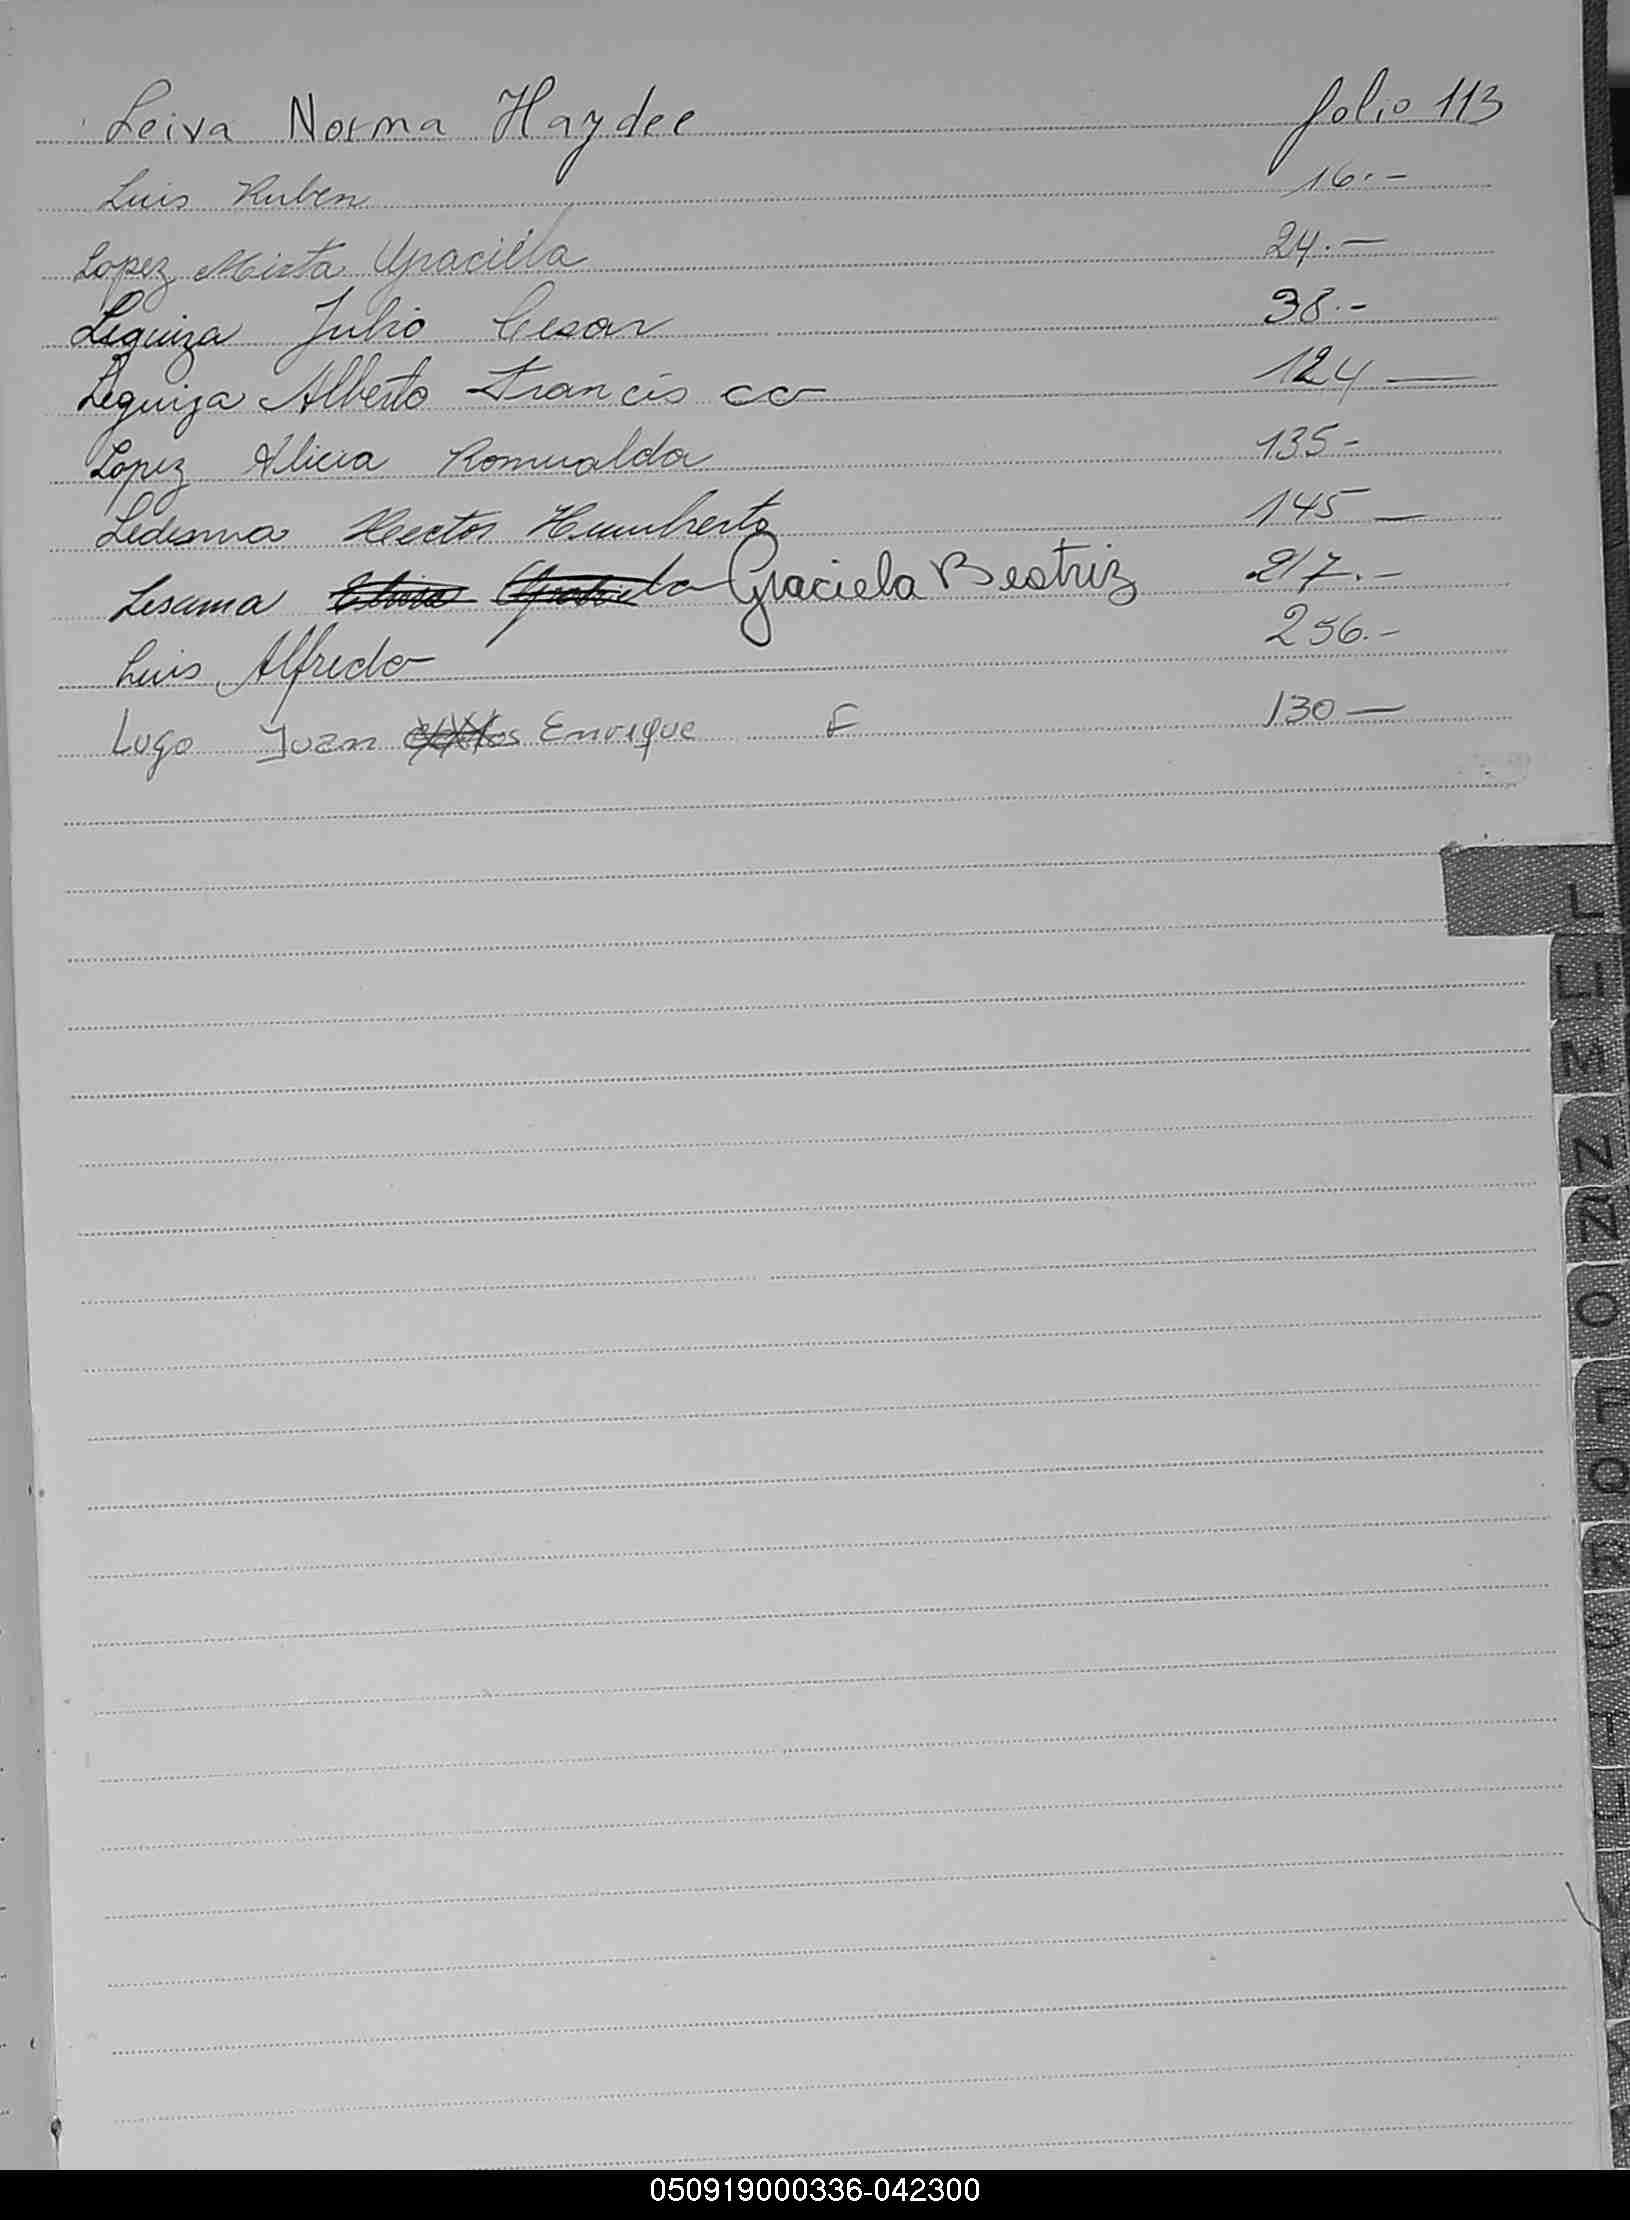 Leiva Norma Haydee folio 113
Luis Ruben 16.-
Lopez Mirta Graciela 24.-
Leguiza Julio Cesar 38.-
Leguiza Alberto Francis co 124 —
Lopez Alicia Romualda 135 -
Ledesma Hector Humberto 145 —
Lesama Graciela Beatriz 217.-
Luis Alfredo 256.-
Lugo Juan Enrique F 130 —
L
LL
M
N
Ñ
O
P
Q
R
S
T
U
050919000336-042300